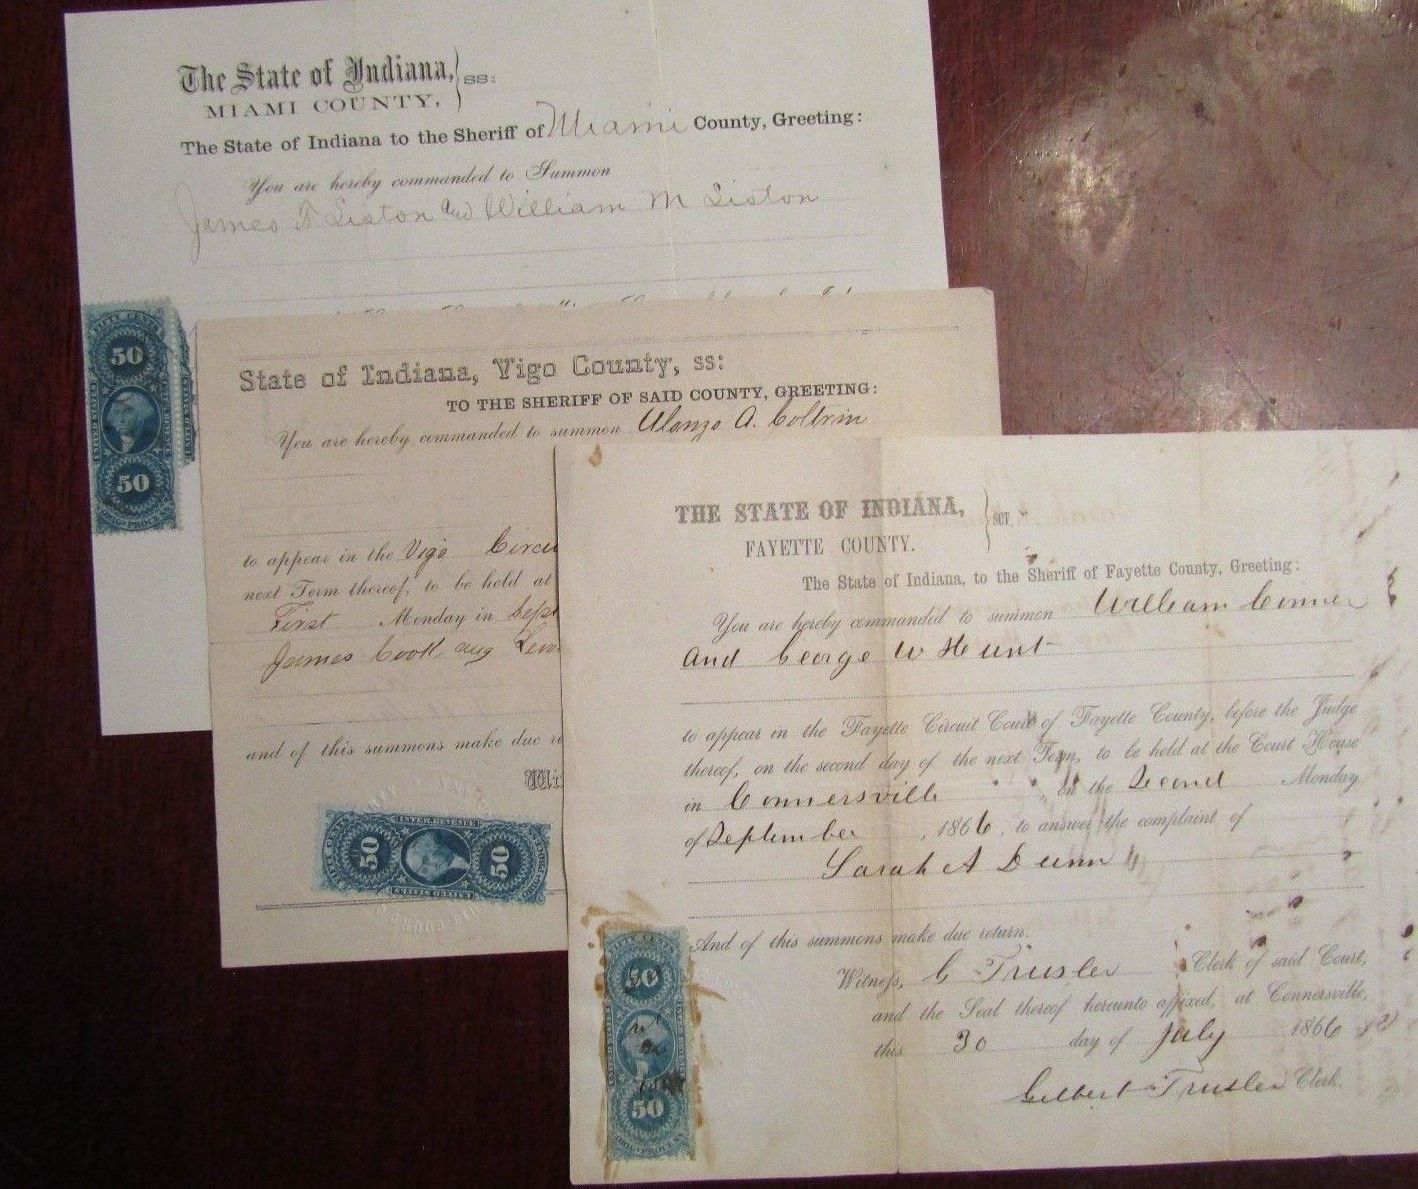 The State of Indiana, } ss:
MIAMI COUNTY,
The State of Indiana to the Sheriff of Miami County, Greeting:
You are hereby commanded to Summon
James F Liston and William M Liston
50
50
State of Indiana, Vigo County, ss:
TO THE SHERIFF OF SAID COUNTY, GREETING:
You are hereby commanded to summon Alonzo A. Coltrin
to appear in the Vigo Circu
next Term thereof, to be held at
First Monday in Sept
James Cook
and of this summons make due re
Wit
INTER. REVENUE
50
50
THE STATE OF INDIANA, } SCT.
FAYETTE COUNTY.
The State of Indiana, to the Sheriff of Fayette County, Greeting:
You are hereby commanded to summon William Conner
and George W Hunt
to appear in the Fayette Circuit Court of Fayette County, before the Judge
thereof, on the second day of the next Term, to be held at the Court House
in Connersville on the Second Monday
of September, 1866, to answer the complaint of
Sarah A Dunn
And of this summons make due return.
Witness, G Trusler Clerk of said Court,
and the Seal thereof hereunto affixed, at Connersville,
this 30 day of July 1866
Gilbert Trusler Clerk.
50
50